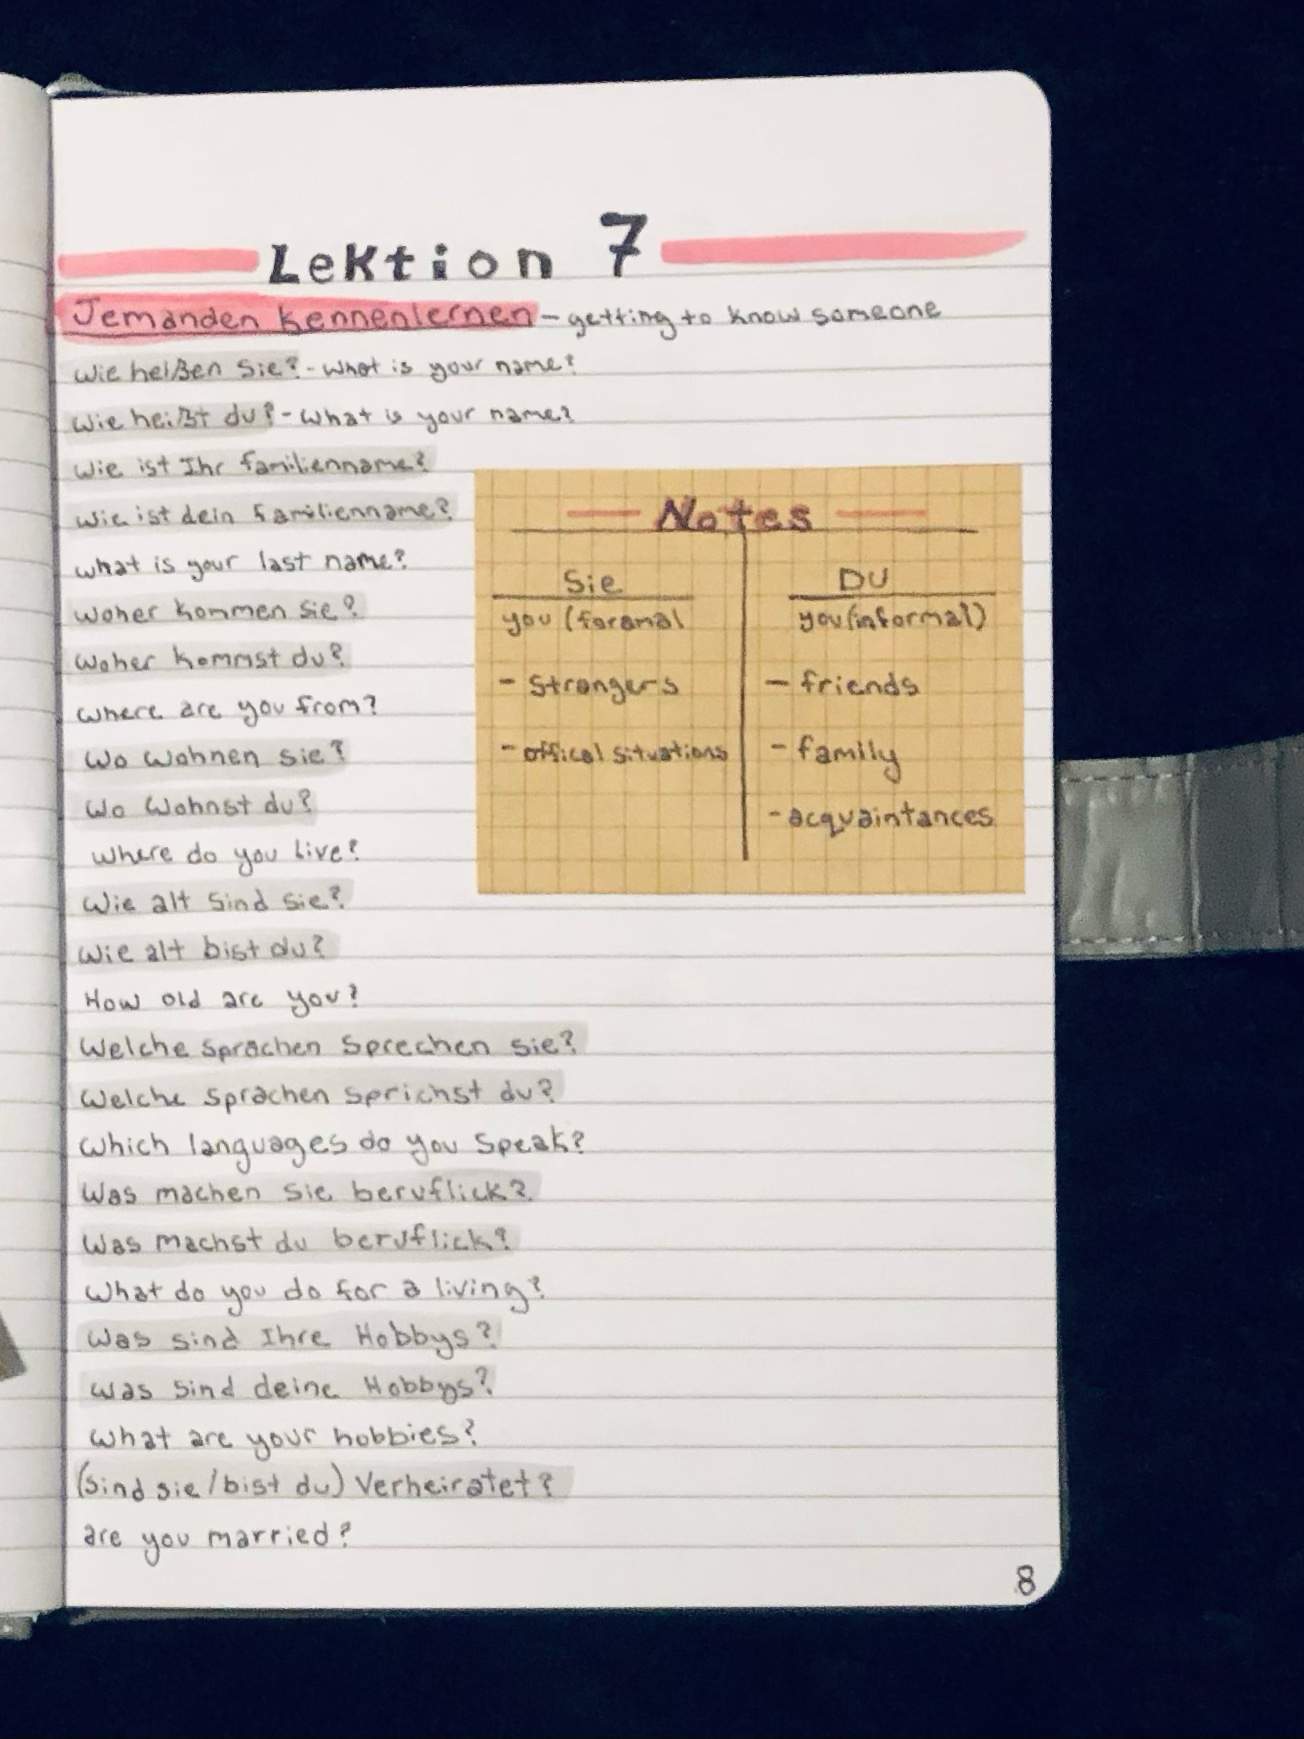 Lektion 7
Jemanden kennenlernen - getting to know someone
Wie heißen Sie? - What is your name?
Wie heißt du? - What is your name?
Wie ist Ihr familienname?
Wie ist dein familienname?
what is your last name?
Woher kommen sie?
Woher kommst du?
Where are you from?
Wo wohnen sie?
Wo wohnst du?
Where do you live?
Wie alt sind sie?
Wie alt bist du?
How old are you?
Welche sprachen sprechen sie?
Welche sprachen sprichst du?
Which languages do you speak?
Was machen sie beruflick?
Was machst du beruflick?
What do you do for a living?
Was sind Ihre Hobbys?
Was sind deine Hobbys?
What are your hobbies?
(sind sie/bist du) Verheiratet?
are you married?
Notes
Sie
you (foramal
- strangers
- offical situations
DU
you (informal)
- friends
- family
- acquaintances
8